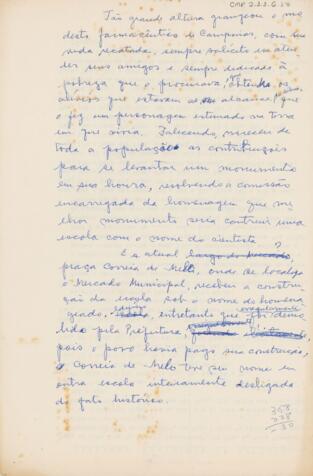 CMP 2.1.1.6
Tão grande altura granjeou o mo
desto farmacêutico de Campinas, com sua
vida recatada, sempre solícito em aten
der seus amigos e sempre dedicado à
pobreza que o procurava, obtendo os
alívios que estavam ao seu alcance, que
o fez um personagem estimado na terra
em que vivia. Falecendo, mereceu de
toda a população as contribuições
para se levantar um monumento
em sua honra, resolvendo a comissão
encarregada da homenagem que me
lhor monumento seria contruir uma
escola com o nome do cientista.
E a atual largo do Mercado,
praça Correia de Melo, onde se localiza
o Mercado Municipal, recebeu a constru
ção da escola sob o nome do homena
geado.
entretanto que foi demo
lido pela Prefeitura,
pois o povo havia pago sua construção,
e Correia de Melo teve seu nome em
outra escola inteiramente desligada
do fato histórico.
358
328
30